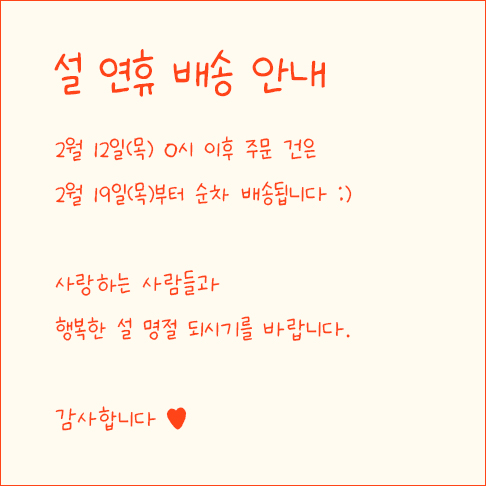 설 연휴 배송 안내
2월 12일(목) 0시 이후 주문 건은
2월 19일(목)부터 순차 배송됩니다 :)
사랑하는 사람들과
행복한 설 명절 되시기를 바랍니다.
감사합니다 ♥